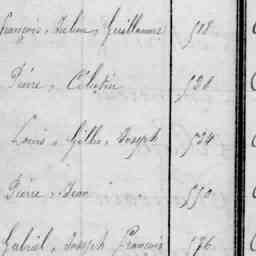 François, Julien, Guillaume 518
Pierre, Célestin 526
Louis, Gilles, Joseph 534
Pierre, Jean 550
Gabriel, Joseph François 576